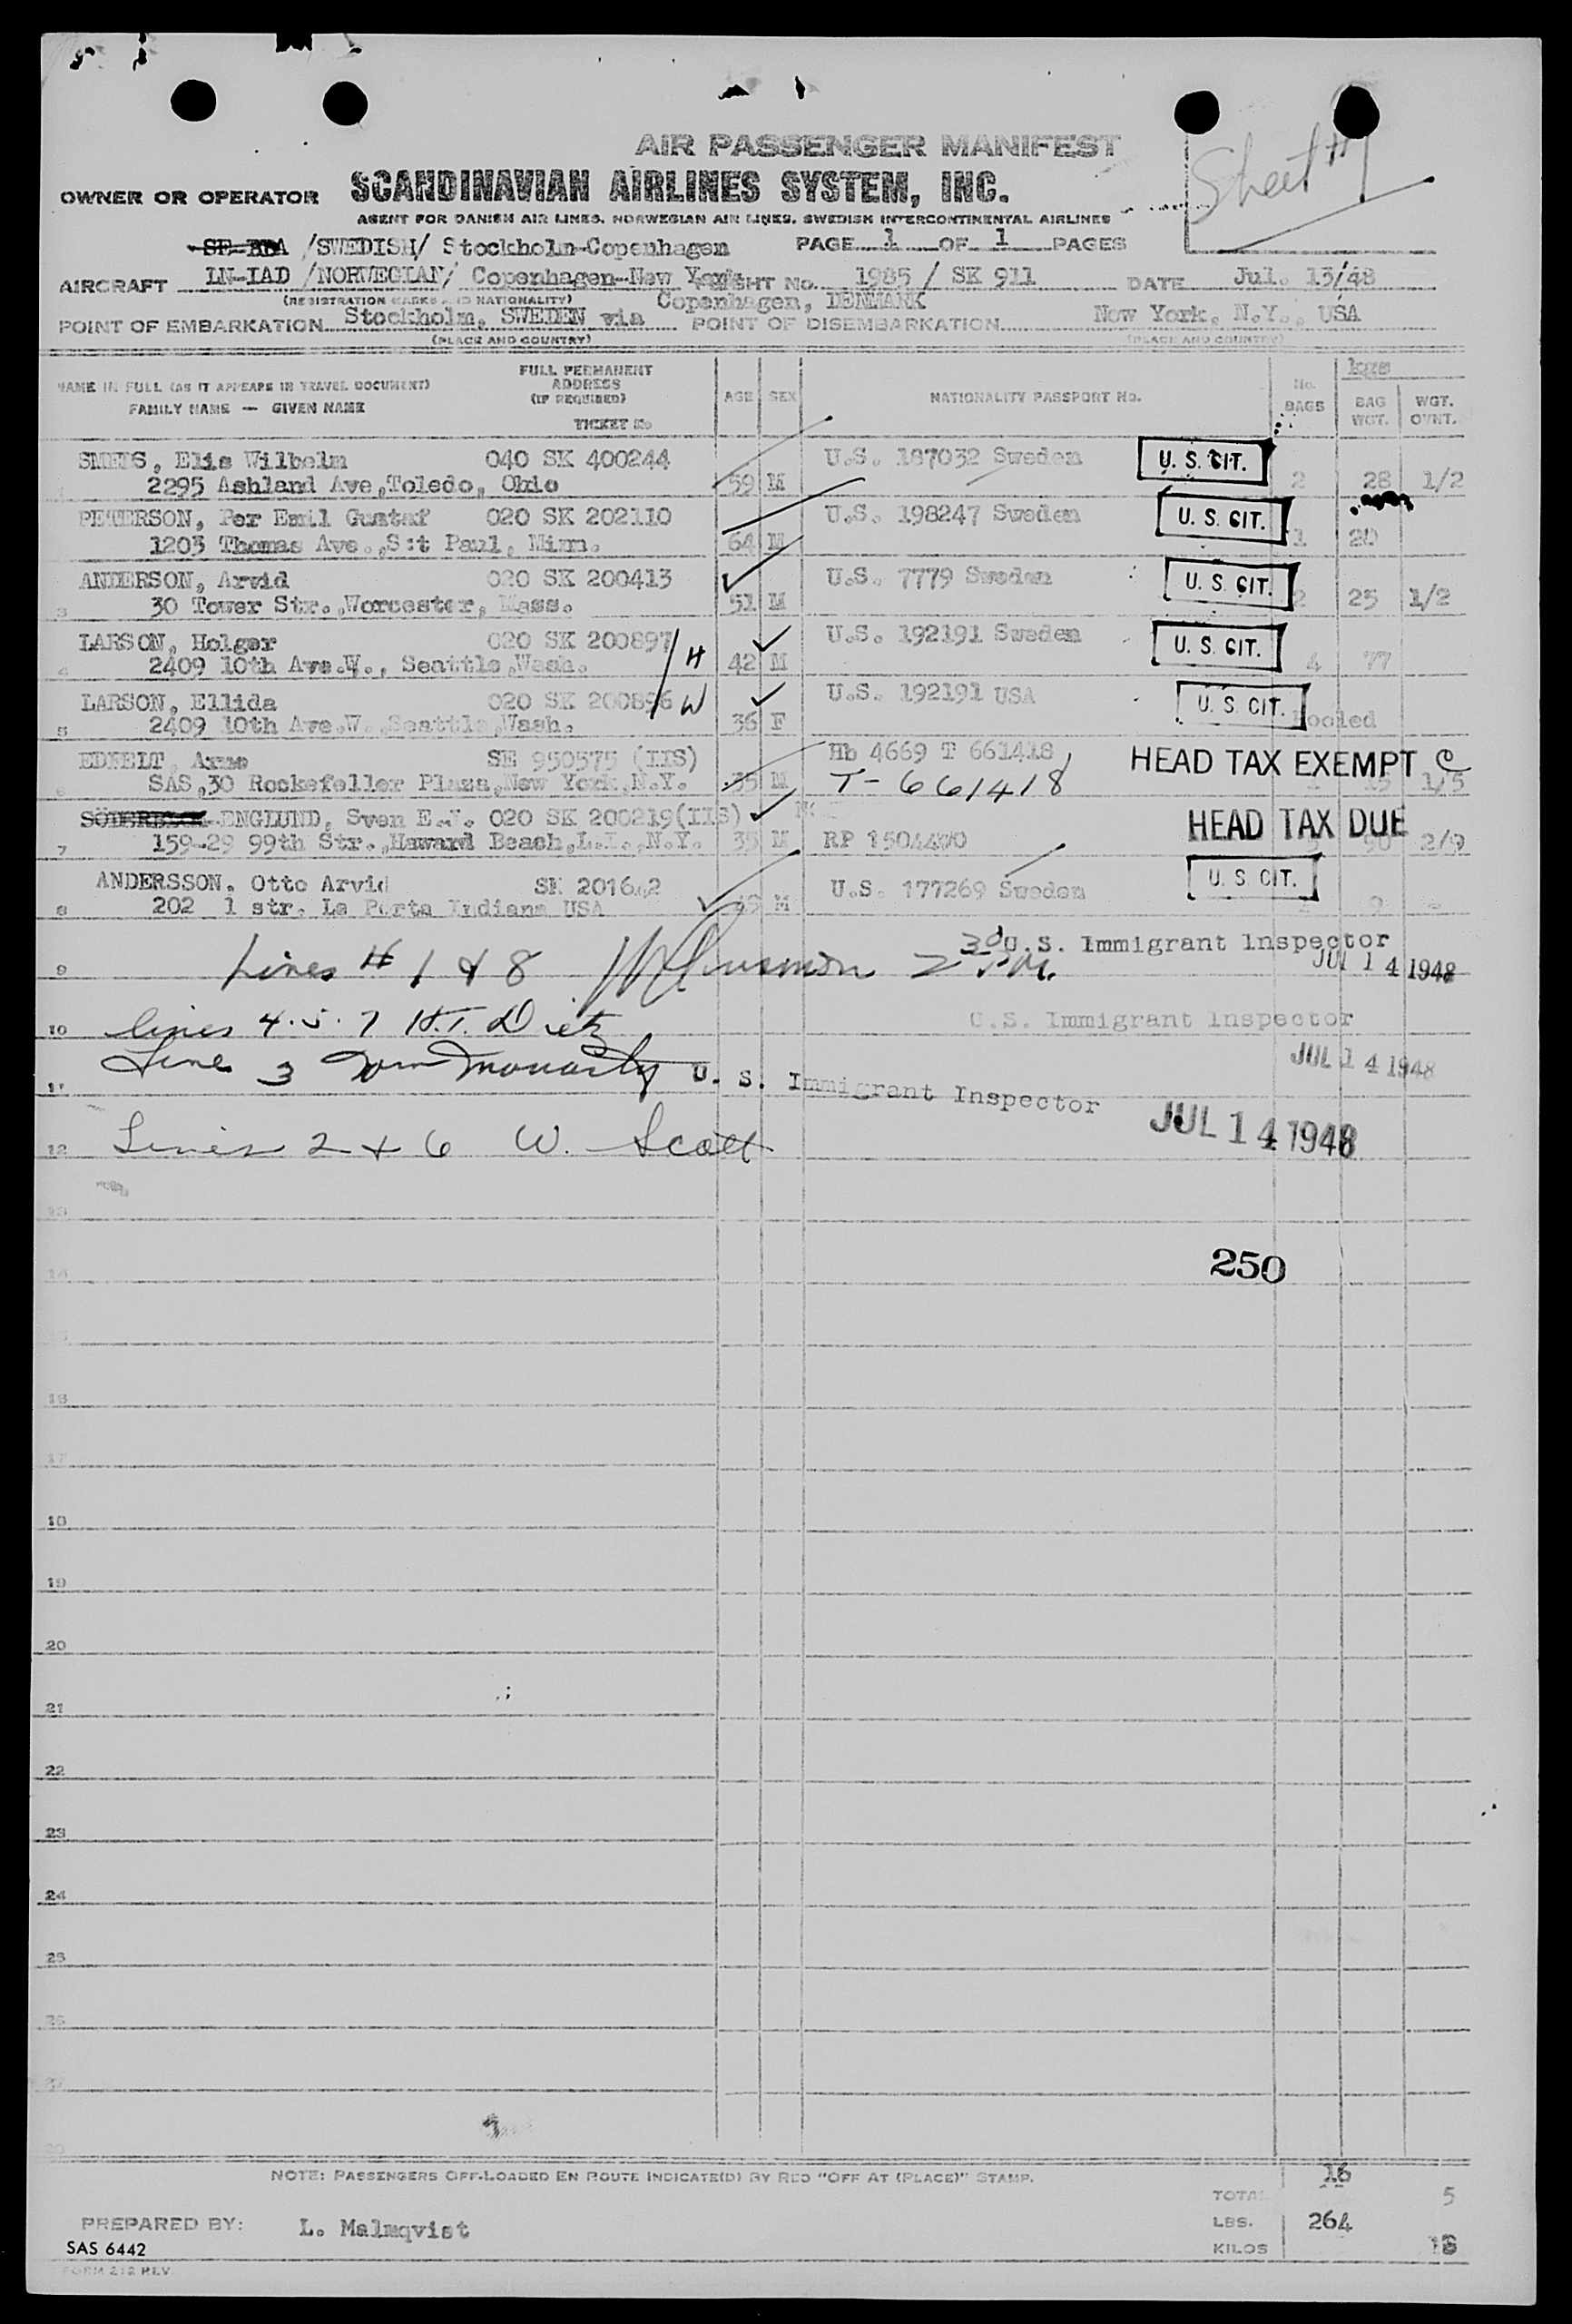 Sheet #1
AIR PASSENGER MANIFEST
OWNER OR OPERATOR SCANDINAVIAN AIRLINES SYSTEM, INC.
AGENT FOR DANISH AIR LINES, NORWEGIAN AIR LINES, SWEDISH INTERCONTINENTAL AIRLINES
/SWEDISH/ Stockholm-Copenhagen PAGE 1 OF 1 PAGES
AIRCRAFT LN-IAD /NORWEGIAN/ Copenhagen-New York FLIGHT No. 1985 / SK 911 DATE Jul. 13/48
(REGISTRATION MARKS AND NATIONALITY) Copenhagen, DENMARK
POINT OF EMBARKATION Stockholm, SWEDEN via POINT OF DISEMBARKATION New York, N.Y., USA
(PLACE AND COUNTRY) (PLACE AND COUNTRY)
NAME IN FULL (AS IT APPEARS IN TRAVEL DOCUMENT) FAMILY NAME — GIVEN NAME
FULL PERMANENT ADDRESS (IF REQUIRED) TICKET No
AGE SEX NATIONALITY PASSPORT No. No. BAGS kgs BAG WGT. WGT. OVNT.
SMEDS, Elis Wilhelm 040 SK 400244 U.S. 187032 Sweden U. S. CIT.
2295 Ashland Ave,Toledo, Ohio 59 M 2 28 1/2
PETERSON, Per Emil Gustaf 020 SK 202110 U.S. 198247 Sweden U. S. CIT.
1203 Thomas Ave.,S:t Paul, Minn. 64 M 1 20
ANDERSON, Arvid 020 SK 200413 U.S. 7779 Sweden U. S. CIT.
3 30 Tower Str.,Worcester, Mass. 51 M 2 25 1/2
LARSON, Holger 020 SK 200897 H U.S. 192191 Sweden U. S. CIT.
4 2409 10th Ave.W., Seattle,Wash. 42 M 4 77
LARSON, Ellida 020 SK 200896 W U.S. 192191 USA U. S. CIT.
5 2409 10th Ave.W. Seattle,Wash. 36 F Pooled
SE 950575 (IIS) Hb 4669 T 661418 HEAD TAX EXEMPT C
6 SAS,30 Rockefeller Plaza,New York,N.Y. 35 M T-661418 1/5
ENGLUND, Sven E.V. 020 SK 200219(IIS) HEAD TAX DUE
7 159-29 99th Str.,Howard Beach,L.I.,N.Y. 35 M RP 1504400 2/9
ANDERSSON, Otto Arvid U.S. 177269 Sweden U. S. CIT.
8 202 1 str. La Porta Indiana USA M 9
9 Lines # 1 & 8 U. S. Immigrant Inspector
JUL 14 1948
10 lines 4. 5. 7 H.T. Dietz U.S. Immigrant Inspector
JUL 14 1948
11 Line 3 U. S. Immigrant Inspector
12 Lines 2 + 6 W. Scott JUL 14 1948
13
14 250
16
17
18
19
20
21
22
23
24
25
26
27
NOTE: PASSENGERS OFF-LOADED EN ROUTE INDICATE(D) BY RED "OFF AT (PLACE)" STAMP. 16
TOTAL 5
PREPARED BY: L. Malmqvist LBS. 264
SAS 6442 KILOS
FORM 212 REV.